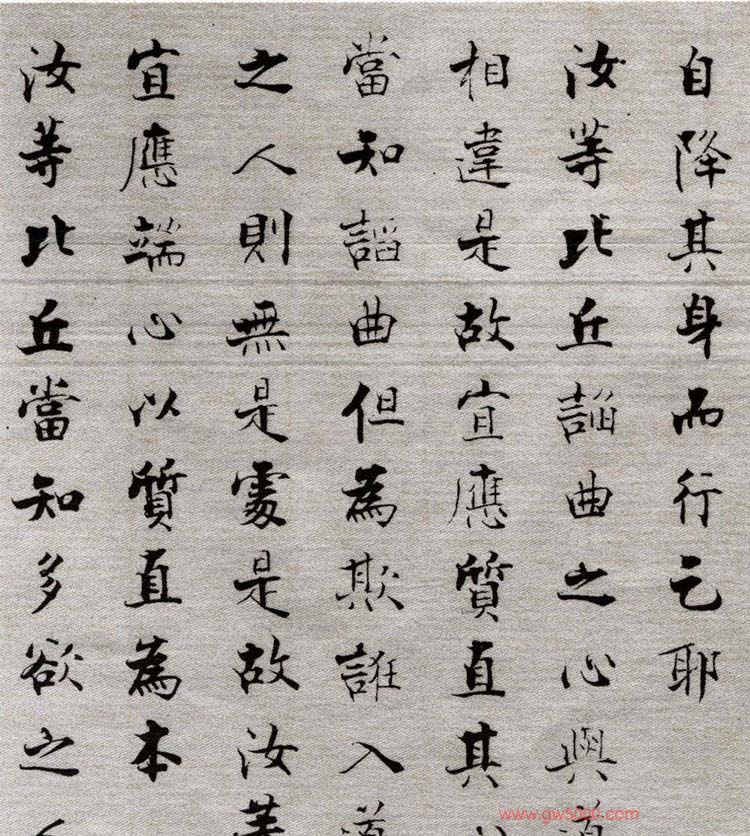 自降其身而行乞耶
汝等比丘諂曲之心與道
相違是故宜應質直其
當知諂曲但為欺誑入道
之人則無是處是故汝等
宜應端心以質直為本
汝等比丘當知多欲之人
www.gw5000.com